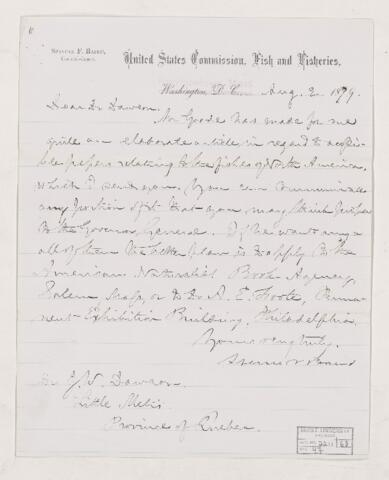 Spencer F. Baird,
Commissioner.
United States Commission, Fish and Fisheries.
Washington, D.C., Aug. 2, 1879.
Dear Dr Dawson.
Mr Goode has made for me
quite an elaborate article in regard to accessi-
ble papers relating to the fishes of North America,
which I send you. You can communicate
any portion of it that you may think proper
to the Governor General. If he wants any or
all of them the better plan is to apply to the
American Naturalist Book Agency,
Salem Mass, or to Dr A. E. Foote, Perma-
nent Exhibition Building, Philadelphia.
Yours very truly,
Spencer F. Baird
Dr J. W. Dawson.
Little Metis.
Province of Quebec.